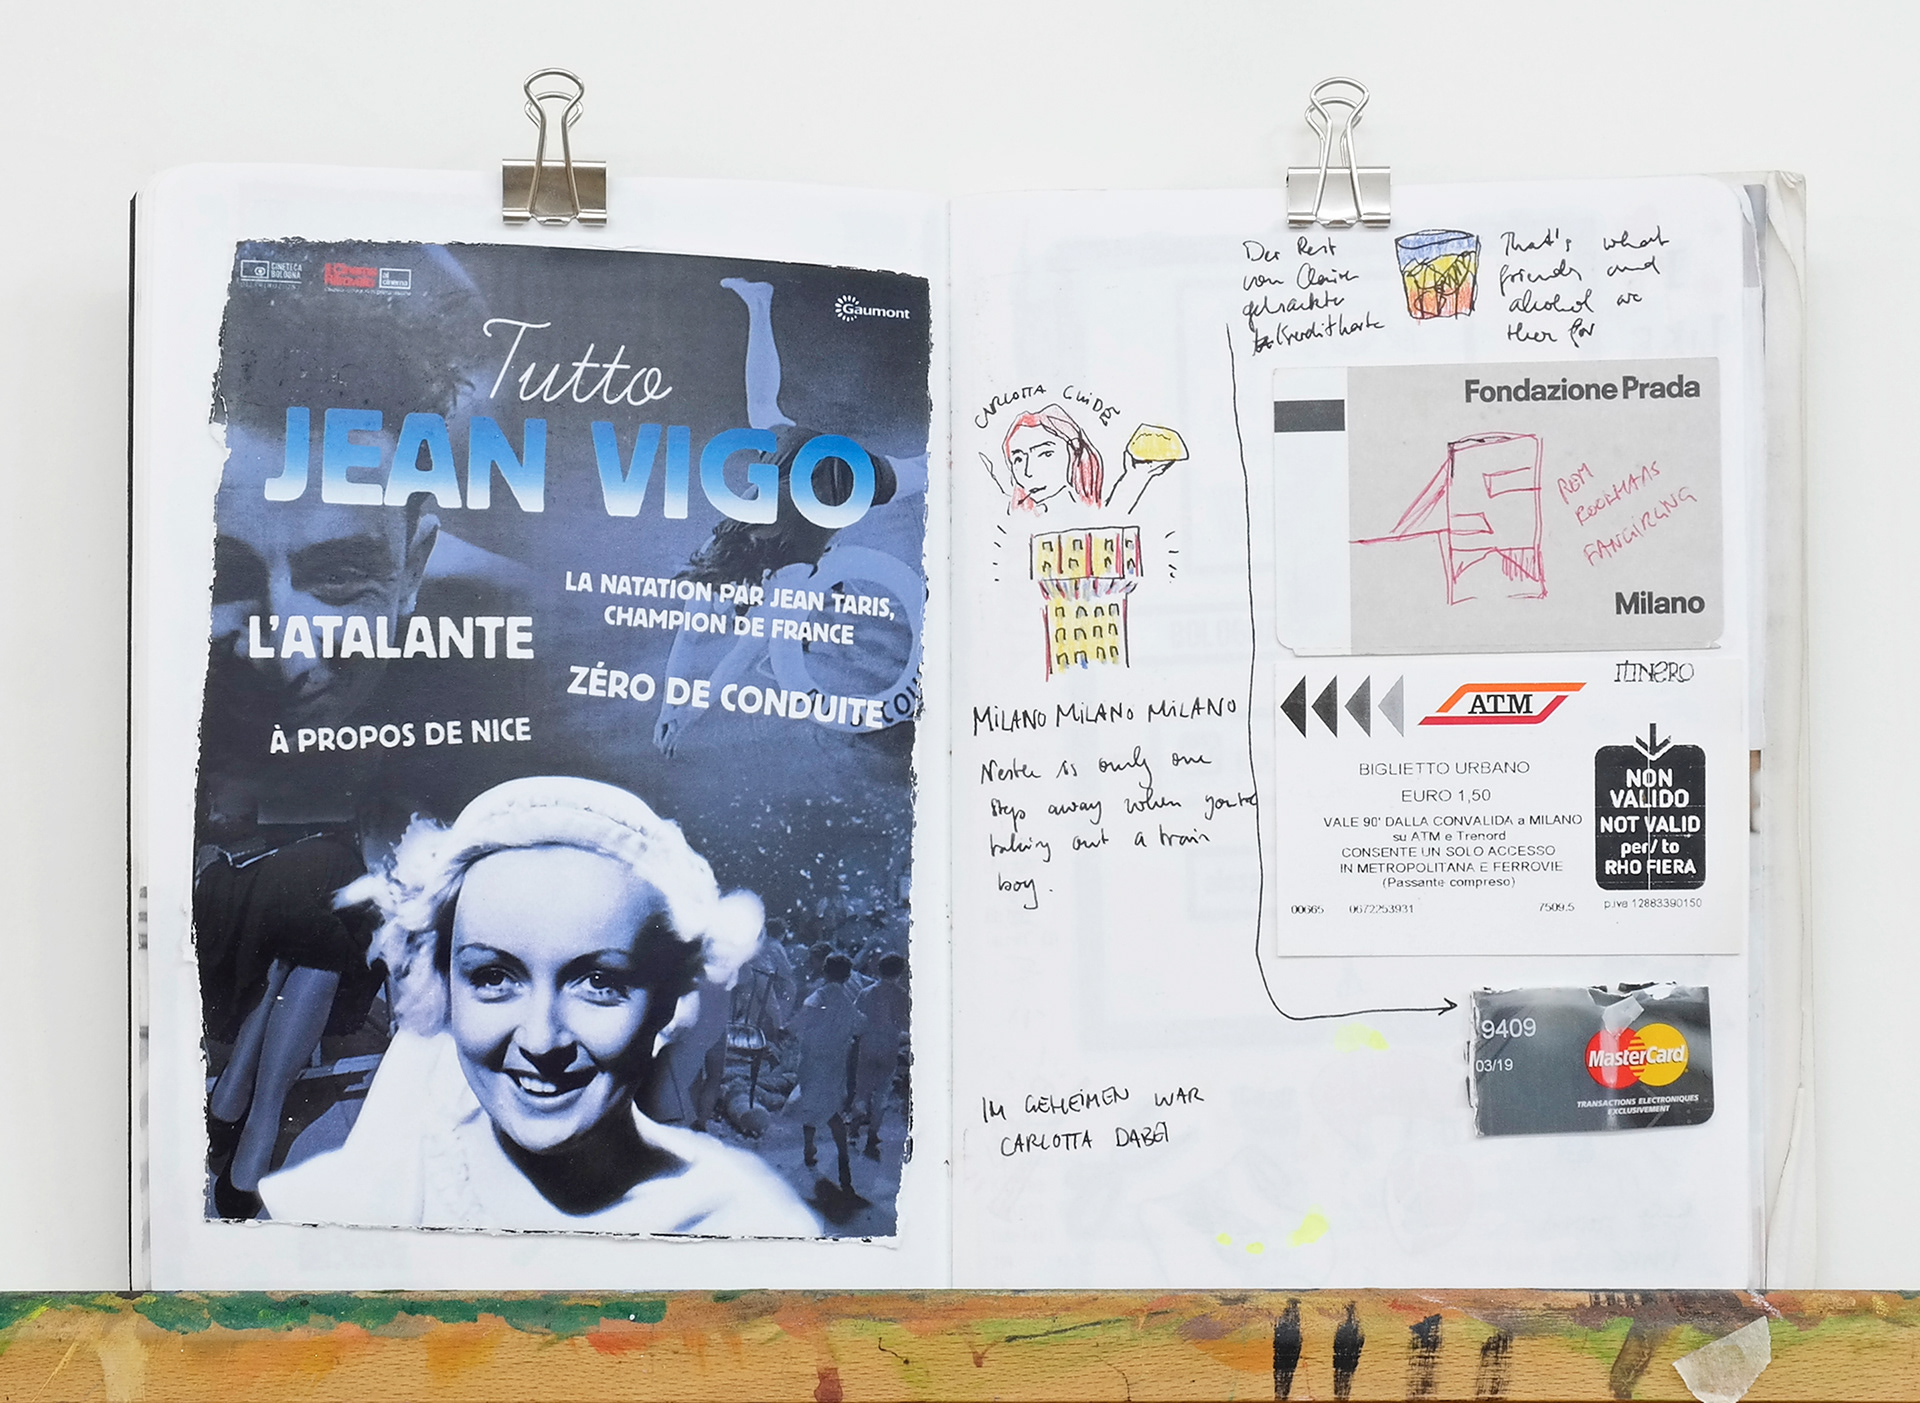 CINETECA
BOLOGNA
Il Cinema
Ritrovato
al
cinema
Gaumont
Tutto
JEAN VIGO
LA NATATION PAR JEAN TARIS,
CHAMPION DE FRANCE
L'ATALANTE
ZÉRO DE CONDUITE
À PROPOS DE NICE
CARLOTTA GUIDE
MILANO MILANO MILANO
is only one
step away when you're
taking out a train
boy.
IM GEHEIMEN WAR
CARLOTTA DABEI
Der Rest
von Claire
gehackte
Kreditkarte
That's what
friends and
alcohol are
ther for
Fondazione Prada
REM
KOOLHAAS
FANGIRLING
Milano
ITINERO
ATM
BIGLIETTO URBANO
EURO 1,50
VALE 90' DALLA CONVALIDA a MILANO
su ATM e Trenord
CONSENTE UN SOLO ACCESSO
IN METROPOLITANA E FERROVIE
(Passante compreso)
00665 0672253931 7509.5
NON
VALIDO
NOT VALID
per/to
RHO FIERA
p.iva 12883390150
9409
03/19
MasterCard
TRANSACTIONS ELECTRONIQUES
EXCLUSIVEMENT